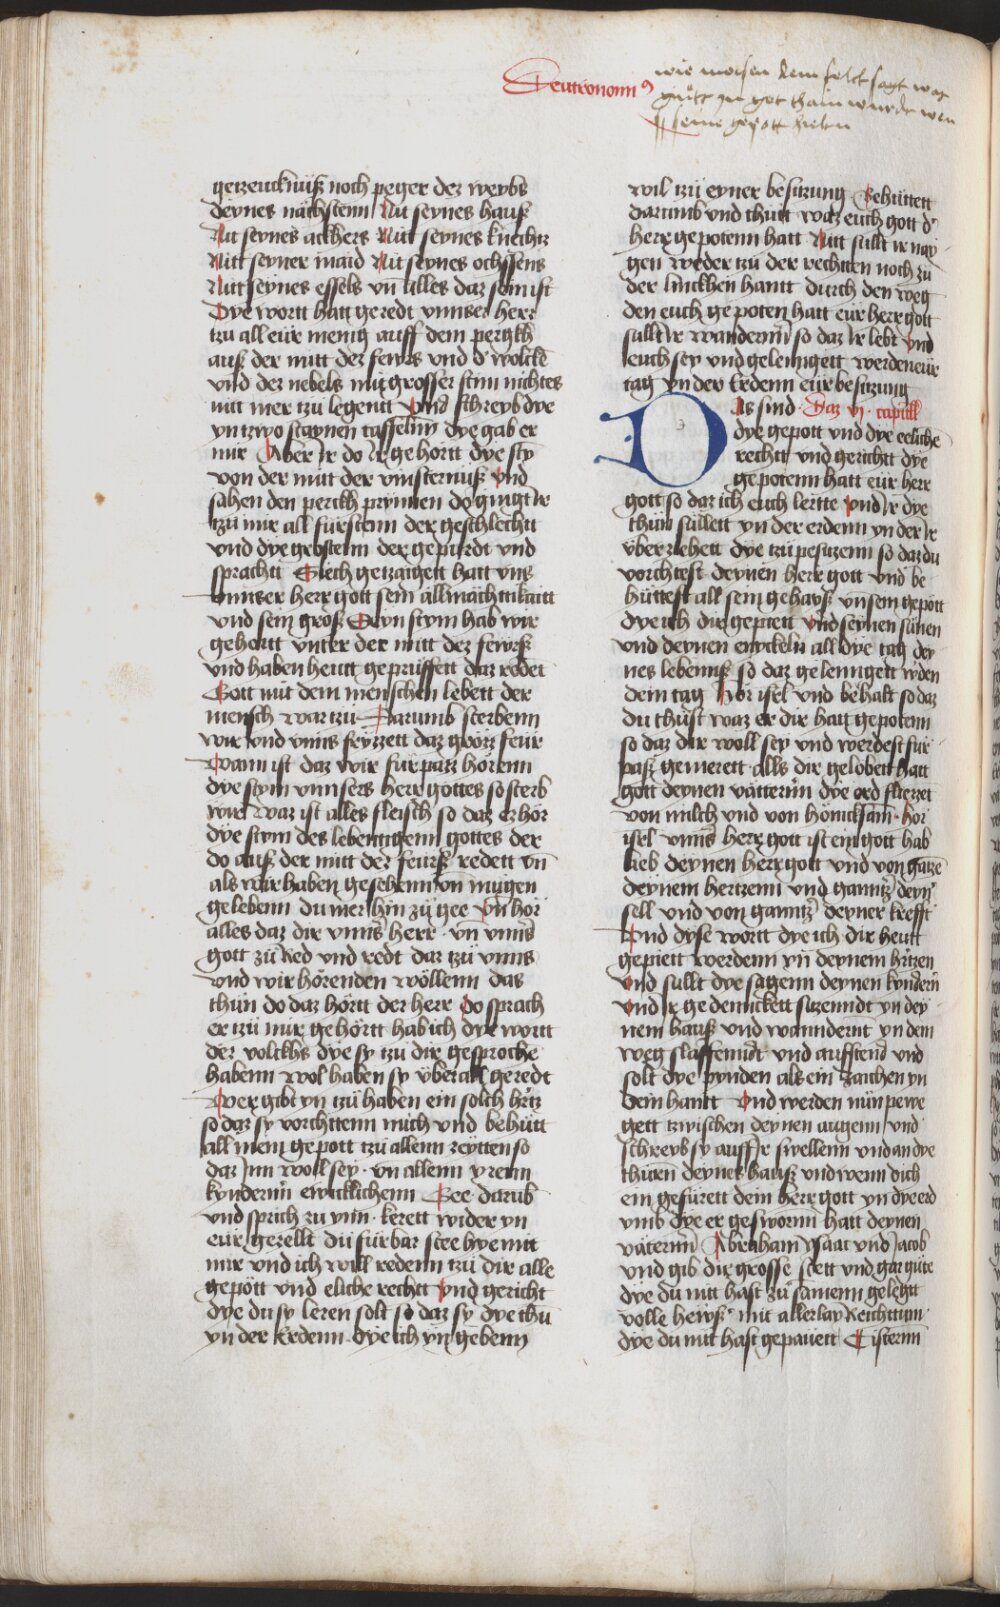 Deutronomi⁹
wie moisen dem folck sagt waz
gutt zu got thain wurde wen
sie seine gepott hielen
getzeucknüß noch peger dez weybs
deynes nächstenn Nit seynes hauß
Nit seynes ackhers Nütt seynes knechtz
Nitt seyner maid Nit seynes ochssens
Nitt seynes essels vn̄ alles daz sein ist
Dye wortt hatt geredt vnnser herr
tzu all eür menig auff dem pergkh
auß der mitt dez fewrs vnd d' wolckē
vnd dez nebels mit grosser stim nichtes
nitt mer tzü legentt Vnd schreyb dye
yn tzwo staynen tasselnn dye gab er
mir Aber Ir do Ir gehörtt dye sty
von der mitt der vinsternüß Vnd
sahen den perckh prynnen do gingt Ir
tzü mir all fürstenn der geschlechtt
vnd dye gebstenn der gepurdt vnd
sprachtt Siech getzaigett hatt vns
vnnser herr gott sein allmächtikaitt
vnd sein größ Seyn stym hab wir
gehortt vnter der mitt dez fewrß
vnd haben heutt geprüffett daz redet
Gott mit dem menschen lebett der
mensch war tzü Darumb sterbenn
wir vnd vnns fryzzett daz grözz feür
Wann ist daz wir fürpazz hörenn
dye stym vnnsers herr gottes so sterb
wir Waz ist alles fleisch so daz er hör
dye stym des lebenttigenn gottes der
do auß der mitt dez feürß redett vn̄
als wir haben gesehenn vn̄ mügen
gelebenn du mer hin zü gee Vn̄ hör
alles daz dir vnns' herr vn̄ vnns'
gott zü Red vnd redt daz tzü vnns
vnd wir hörenden wöllenn das
thün do daz hörtt der herr do sprach
er tzü mir gehörtt hab ich dye wortt
dez volckhs dye sy tzu dir gesprochē
habenn wol haben sy überall geredt
Wer gibt yn tzü haben ein solch hrtz
so daz sy vorchttenn mich vnd behütt
all mein gepott tzü allenn zeytten so
daz Inn woll sey vn̄ allenn yrenn
kyndernn ewicklichenn Gee darüb
vnd sprich zu ynn kerett wider yn
eür gezellt dü fürbar stee hye mit
mir vnd ich will redenn tzü dir alle
gepött vnd eliche rechtt Vnd gericht
dye du sy leren solt so daz sy dye thū
yn der Erdenn dye ich yn gebenn
wil tzü eyner besitzung Behüttett
darumb vnd thütt waz euch gott d'
herr gepotenn hatt Nitt sullt ir nay
gen weder tzü der rechtten noch zü
der linckhen hantt durch den weg
den euch gepoten hatt eür herr gott
sullt Ir wandernn so daz Ir lebt Vnd
euch sey vnd gelenngett werden eür
tag yn der Erdenn eür besitzung
Das sind Daz vj capittl
dye gepott vnd dye eelichē
rechtt vnd gerichtt dye
gepotenn hatt eür herr
gott so daz ich euch lertte Vnd Ir dye
thün süllett yn der erdenn yn der Ir
überziehett dye tzü pesitzenn so daz du
vorchtest deynen herr gott vnd be
hüttest all sein gehayß vn̄ sein gepött
dye ich dir gepiett Vnd seynen sünen
vnd deynen enyckeln all dye tag dey
nes lebenns so daz gelenngett w'den
dein tag Hör isrl vnd behalt so daz
du thüst waz er dir hatt gepotenn
so daz dir woll sey vnd werdest für
paß gemerett alls dir gelobett hatt
gott deynen vätternn dye erd fliezzet
von milch vnd von hönicksam hör
isrl vnns' herr gott ist ein gott hab
lieb deynen herr gott vnd von gatzē
deynem hertzenn vnd ganntz' deyn'
sell vnd von ganntz' deyner krefft
Vnd dyse wortt dye ich dir heutt
gepiett werdenn yn deynem hrtzen
Vnd sullt dye sagenn deynen kyndern̄
Vnd Ir gedennckett sitzenndt yn dey
nem hauß vnd wanndernt yn dem
weg slaffenndt vnd auffstend vnd
solt dye pynden als ein zaichen yn
dein hantt Vnd werden nün pewe
gett tzwischen deynen augenn vnd
schreyb sy auff Ir swellenn vnd an dye
thüren deynes hauß vnd wenn dich
ein gefürett dein herr gott yn dye erd
vmb dye er geswornn hatt deynen
väternn Abraham ysaac vnd Jacob
vnd gib dir grosse stett vnd gar gute
dye du nitt hast zü samenn gelegtt
volle hewß mit allerlay Reichttum
dye du nitt hast gepauett Cisternn